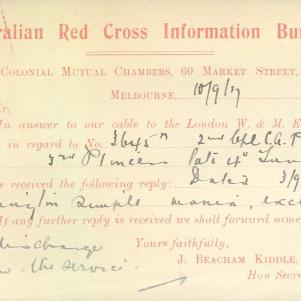 ralian Red Cross Information Bu
COLONIAL MUTUAL CHAMBERS, 60 MARKET STREET,
MELBOURNE, 10/9/17
ir,
In answer to our cable to the London W. & M. E
in regard to No. 3645 2nd Cpl C.A.
3rd Pioneers late 4th
e received the following reply: Dated 3/9
simple mania,
If any further reply is received we shall forward some
discharge Yours faithfully,
the service. J. BEACHAM KIDDLE,
Hon Secre